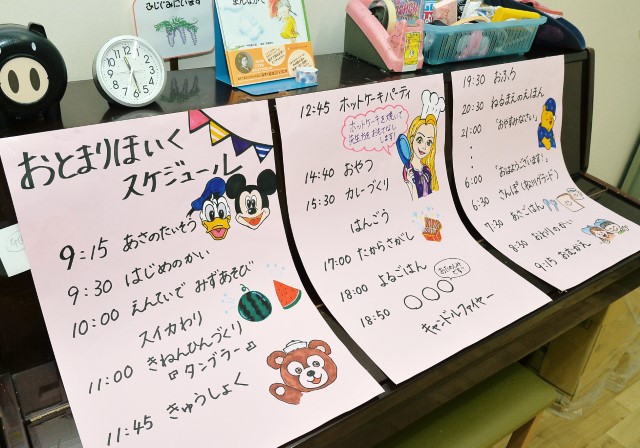 ふじぐみにいます
おとまりほいく
スケジュール
9:15 あさのたいそう
9:30 はじめのかい
10:00 えんていで みずあそび
スイカわり
11:00 きねんひんづくり
『タンブラー』
11:45 きゅうしょく
12:45 ホットケーキパーティ
ホットケーキを焼いて
先生方をおもてなし
します!
14:40 おやつ
15:30 カレーづくり
はんごう
17:00 たからさがし
18:00 よるごはん
18:50 ○○○
おたのしみ
です。
キャンドルファイヤー
19:30 おふろ
20:30 ねるまえのえほん
21:00 「おやすみなさい」
「おはようございます!」
6:00
6:30 さんぽ
7:30 あさごはん
8:30 おわりのかい
9:15 おむかえ